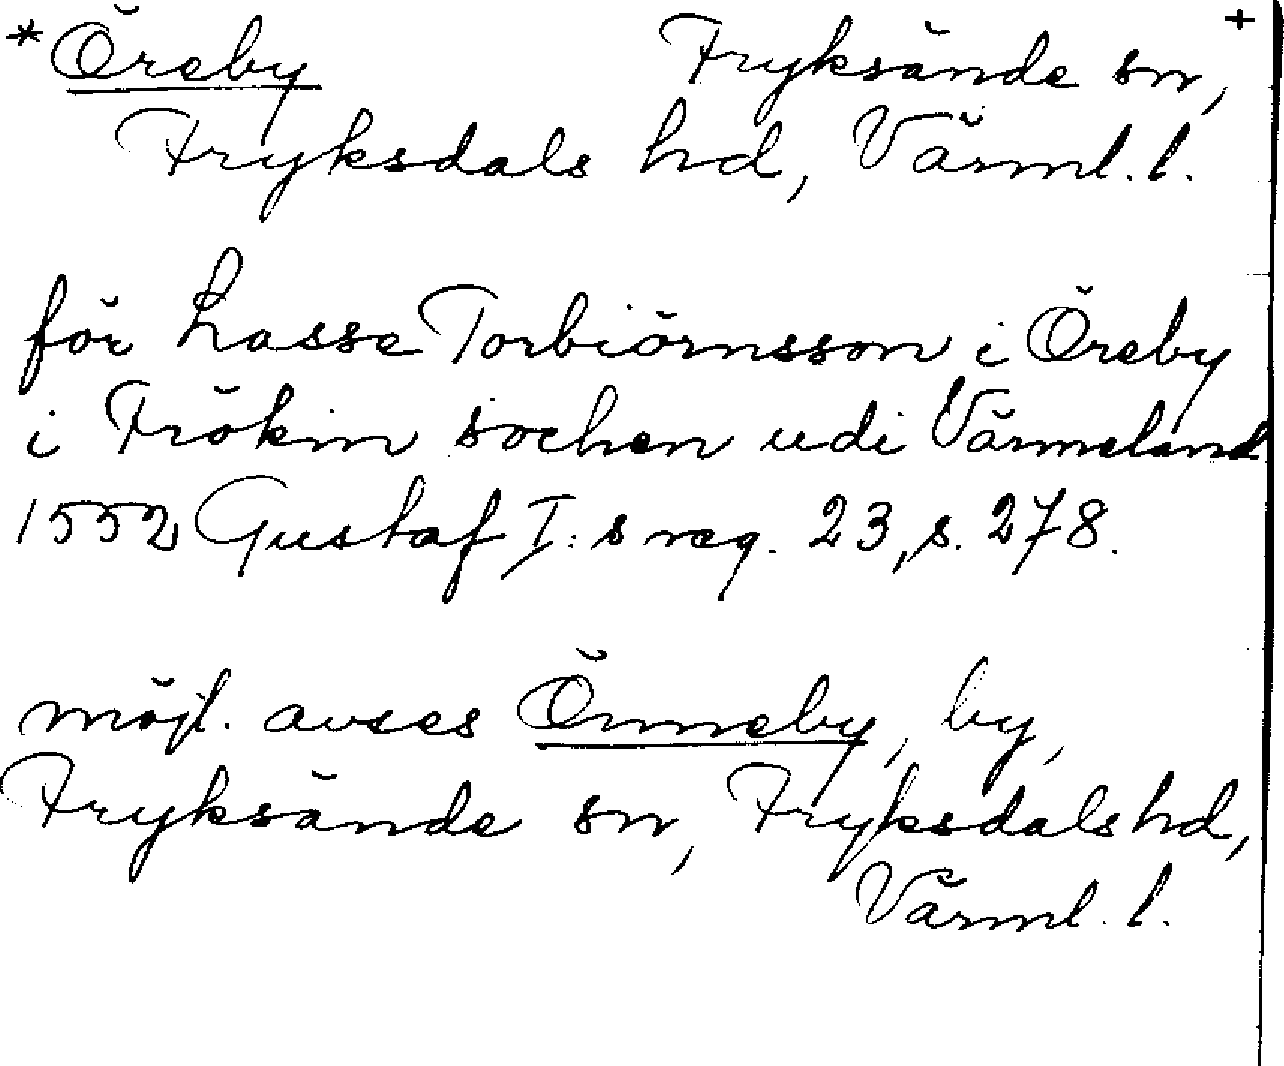 * Öreby Fryksände sn, +
Fryksdals hd, Värml. l.
för Lasse Torbiörnsson i Öreby
i Frökin sochen udi Värmeland
1552 Gustaf I:s reg. 23, s. 278.
möjl. avses Önneby, by,
Fryksände sn, Fryksdals hd,
Värml. l.